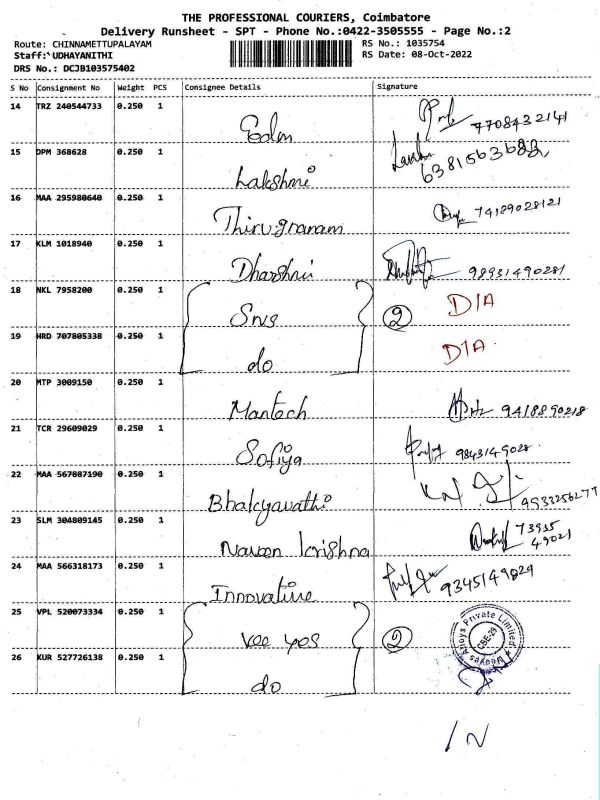 THE PROFESSIONAL COURIERS, Coimbatore
Delivery Runsheet - SPT - Phone No.:0422-3505555 - Page No.:2
Route: CHINNAMETTUPALAYAM RS No.: 1035754
Staff: UDHAYANITHI RS Date: 08-Oct-2022
DRS No.: DCJB103575402
S No Consignment No Weight PCS Consignee Details Signature
14 TRZ 240544733 0.250 1
7708432141
15 DPM 368628 0.250 1
Lakshmi
16 MAA 295980640 0.250 1 74189028121
Thirugnanam
17 KLM 1018940 0.250 1
Dharshni 98931490281
18 NKL 7958200 0.250 1 D/A
Sns 2
19 HRD 707805338 0.250 1
do D/A
20 MTP 3009150 0.250 1
Mantech 9418890218
21 TCR 29609029 0.250 1
Sofiya 9843149028
22 MAA 567887190 0.250 1
Bhakyavathi 4933256277
23 SLM 304809145 0.250 1 73935
Naveen krishna 49021
24 MAA 566318173 0.250 1
Innovative 9345149824
25 VPL 520073334 0.250 1
Vee yes 2 Alloys Private Limited CBE-29
26 KUR 527726138 0.250 1
do
IN